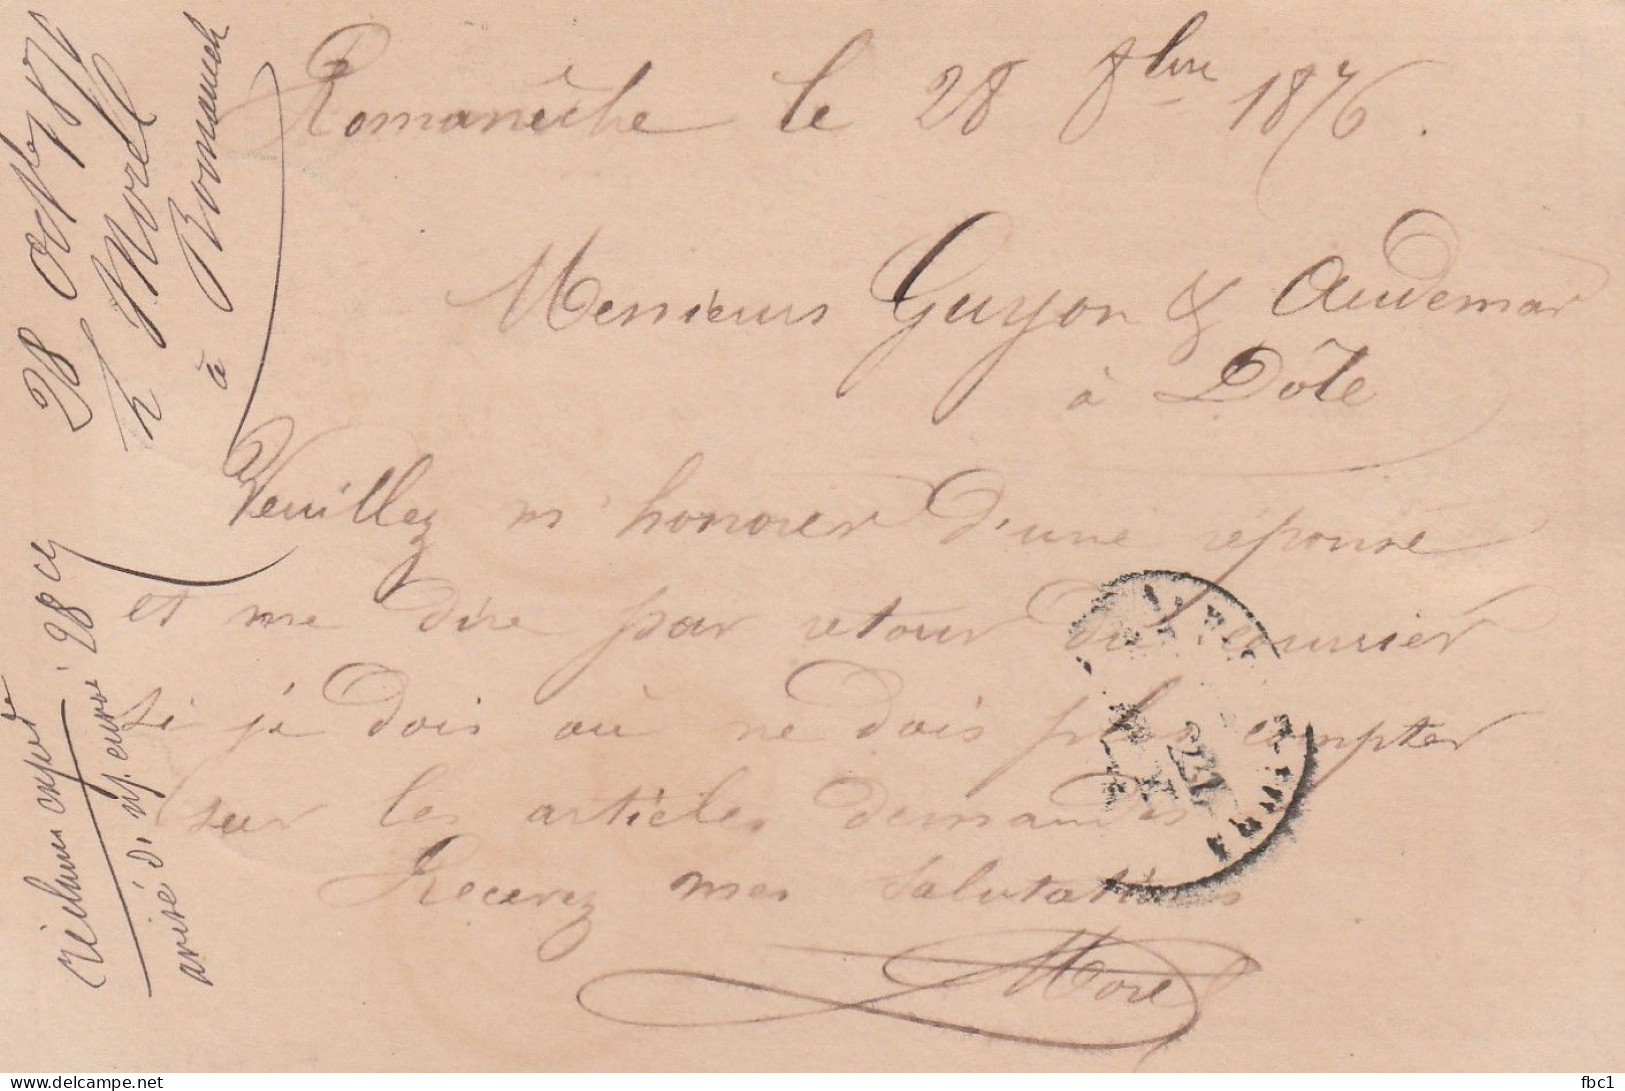 Romanèche le 28 8bre 1876.
Messieurs Guyon & Audemar
à Dôle
Veuillez m'honorer d'une réponse
et me dire par retour du courrier
si je dois ou ne dois plus compter
sur les articles demandés
Recevez mes salutations
Morel
28 Octbre 1876
Morell
à Romanech
réclame
avisé di env 28 ct
www.delcampe.net
fbc1